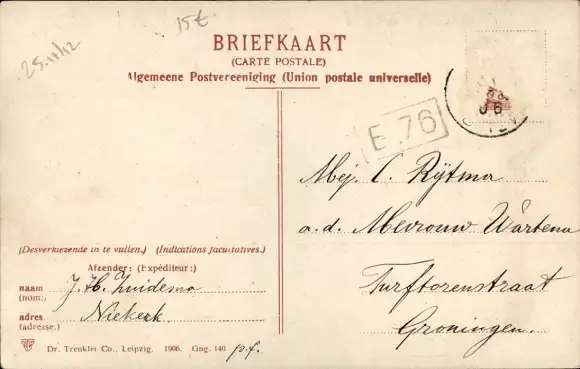 15€
25.11/12
BRIEFKAART
(CARTE POSTALE)
Algemeene Postvereeniging (Union postale universelle)
06
E.76
Mej. C. Rijtma
a.d. Mevrouw Wartena
Turftorenstraat
Groningen.
(Desverkiezende in te vullen.) (Indications facultatives.)
Afzender: (Expéditeur:)
naam J. H. Zuidema
(nom:)
adres Niekerk
(adresse.)
Dr. Trenkler Co., Leipzig. 1906. Gng. 140 p.f.